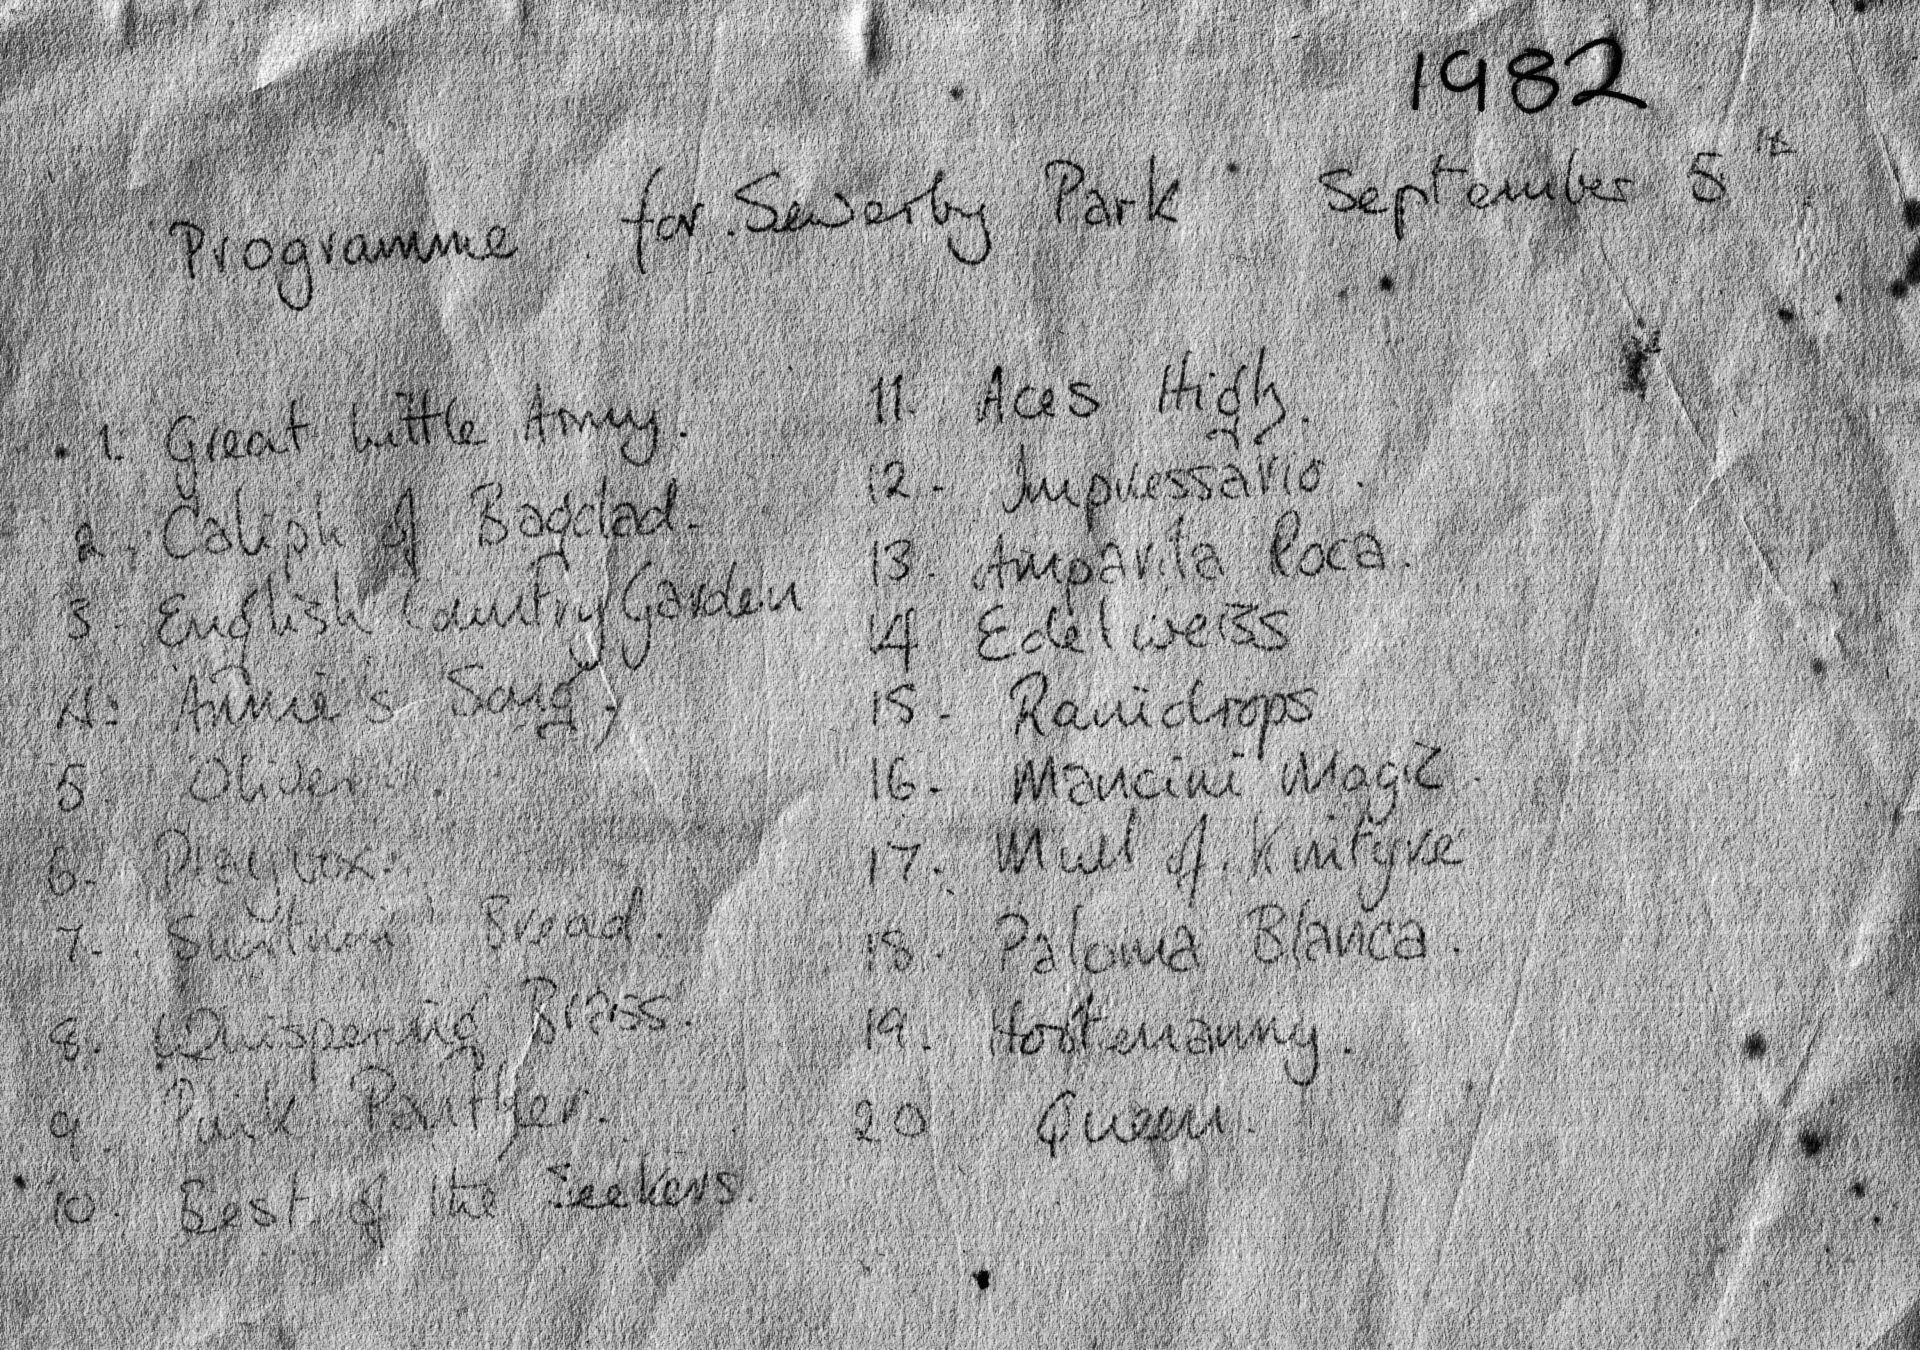 1982
Programme for Sewerby Park September 5th
1. Great Little Army.
2. Caliph of Bagdad.
3. English Country Garden
4. Annie's Song.
5. Oliver.
6. Playbox.
7. Bread.
8. Whispering Brass.
9. Pink Panther.
10. Best of the Seekers.
11. Aces High.
12. Impressario.
13. Amparita Roca.
14 Edelweiss
15. Raindrops
16. Mancini Magic.
17. Mull of Kintyre
18. Paloma Blanca.
19. Hootenanny.
20 Queen.